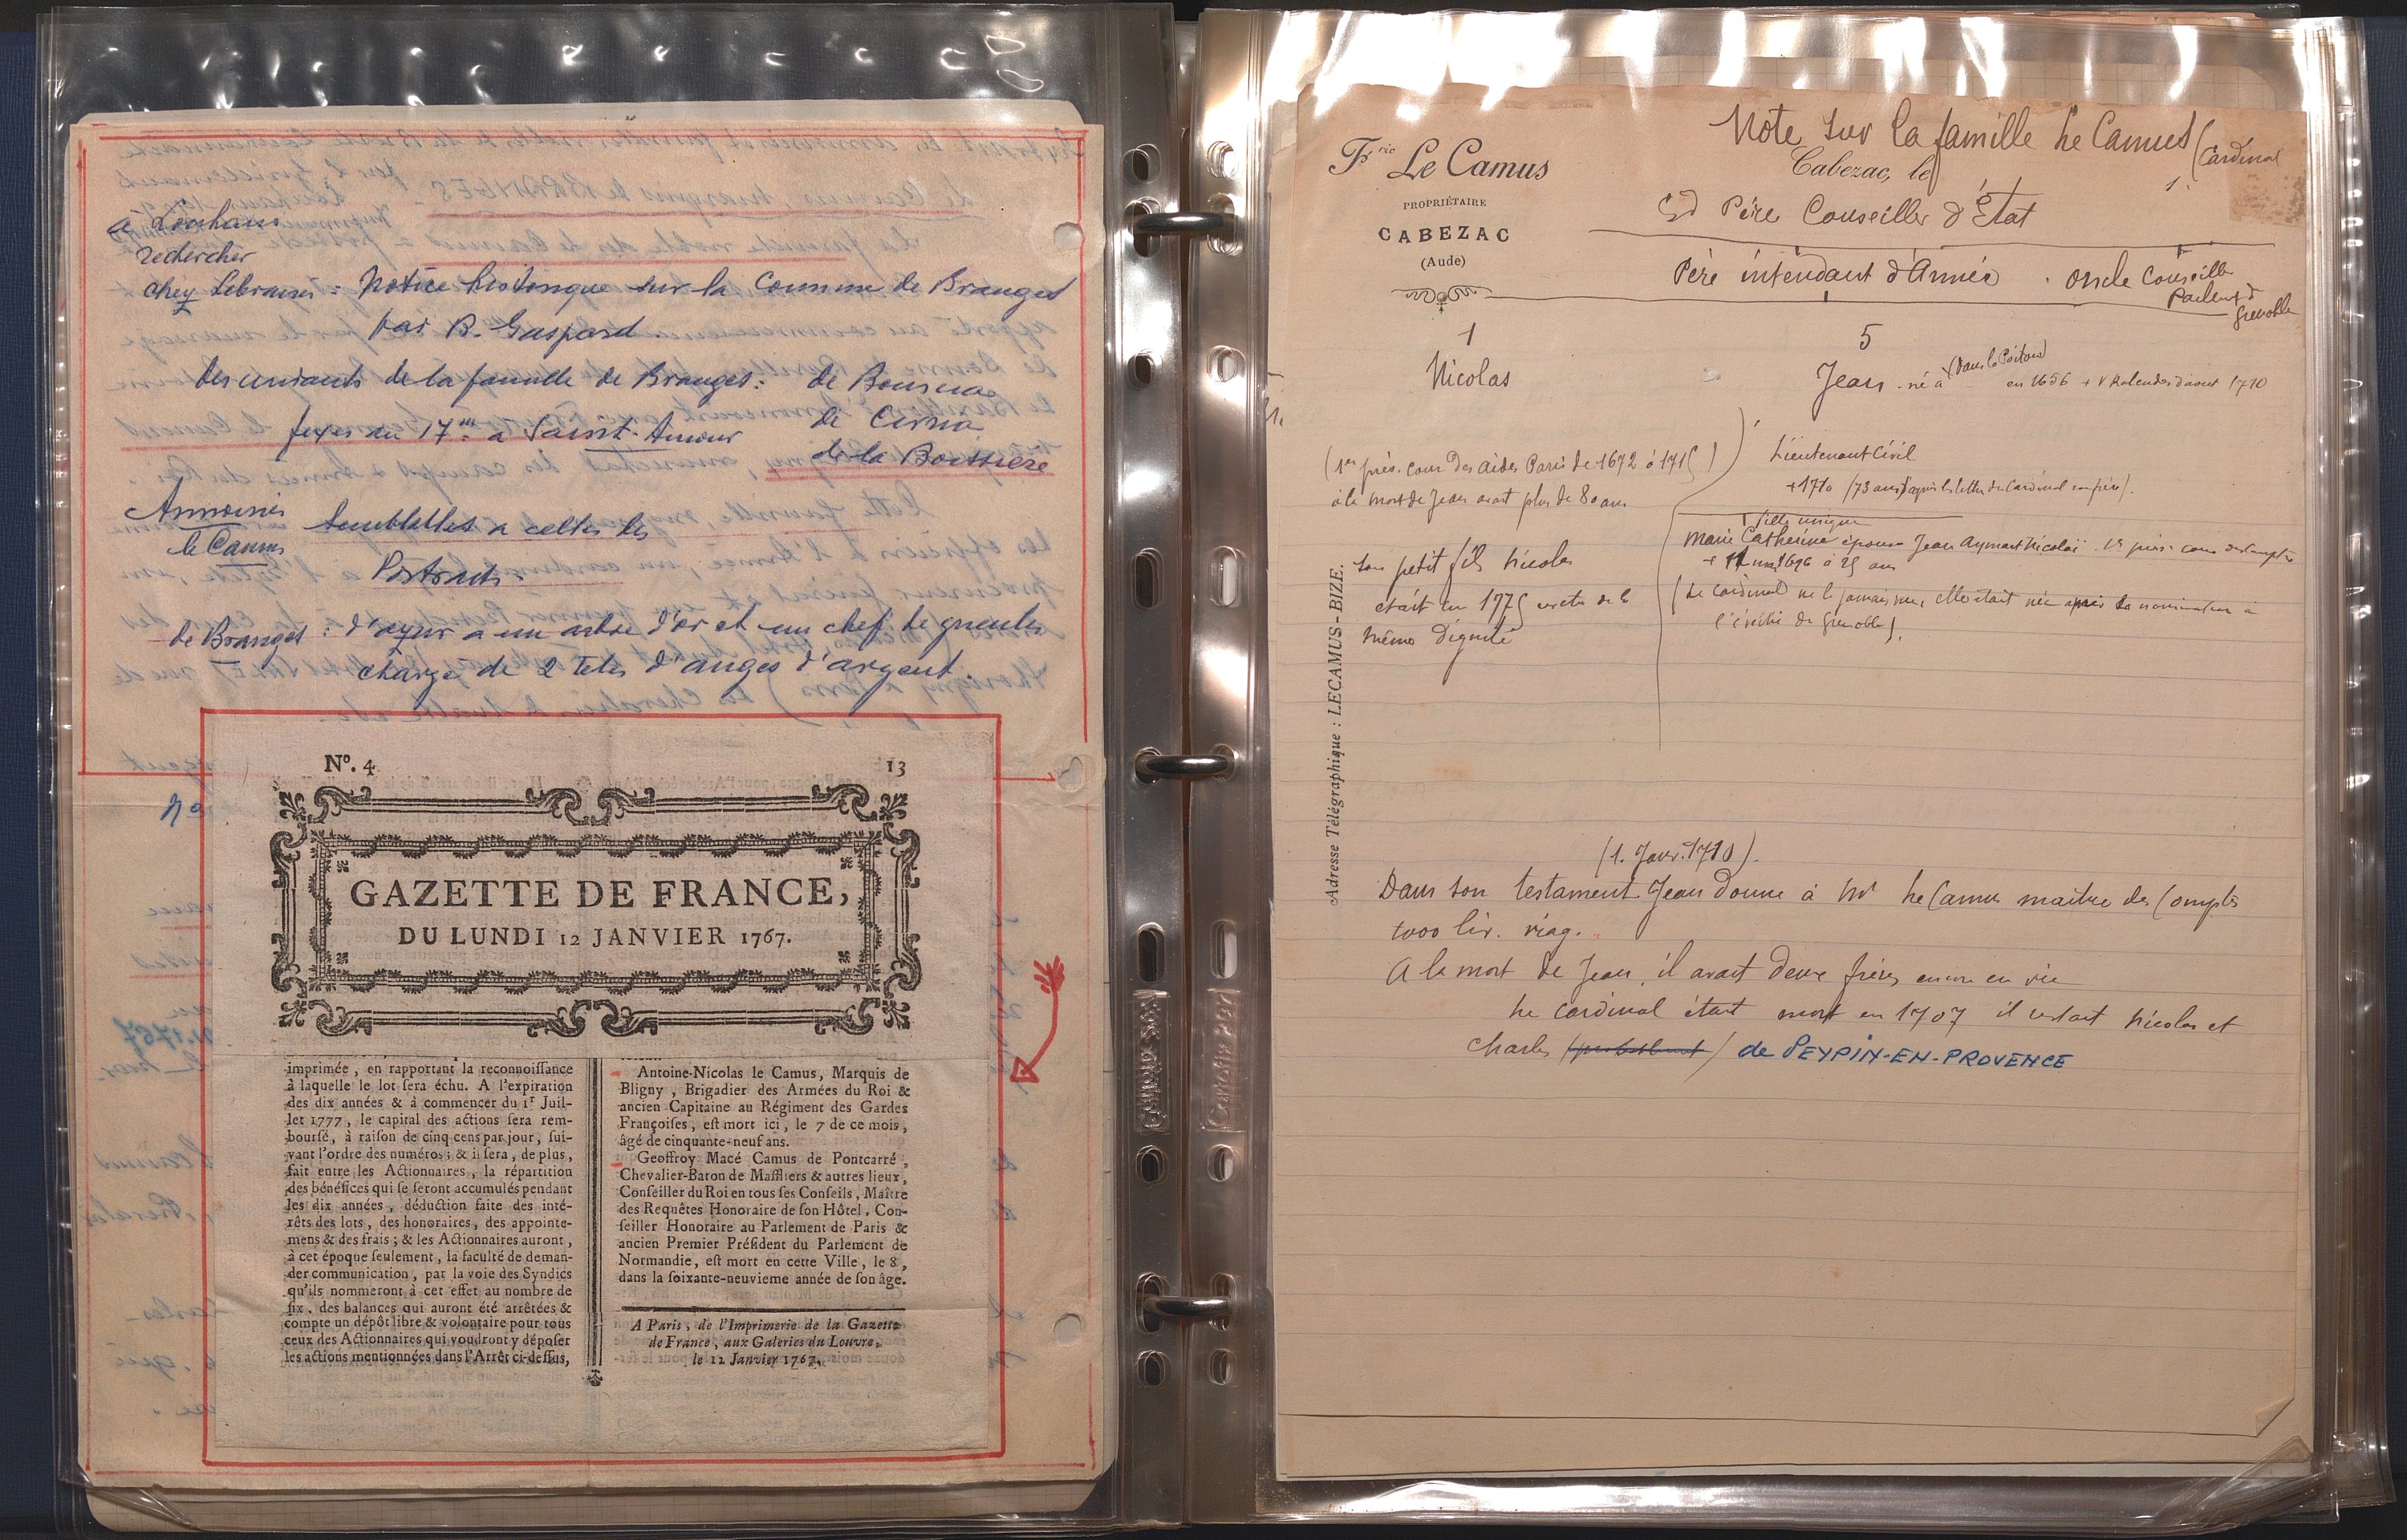 a Louhans
rechercher
chez Libraires : Notice historique sur la Commune de Branges
par B. Gaspard.
Descendants de la famille de Branges : de Boursac
fixés au 17me a Saint-Amour de Cirna
de la Boissière
Armoiries
le Camus
Semblables a celles des
Portraits.
de Branges : d'azur a un arbre d'or et un chef de gueules
chargé de 2 têtes d'anges d'argent.
No. 4
13
GAZETTE DE FRANCE,
DU LUNDI 12 JANVIER 1767.
imprimée, en rapportant la reconnoiſſance
à laquelle le lot ſera échu. A l'expiration
des dix années & à commencer du 1r Juil-
let 1777, le capital des actions ſera rem-
bourſé, à raiſon de cinq cens par jour, ſui-
vant l'ordre des numéros; & il ſera, de plus,
fait entre les Actionnaires, la répartition
des bénéfices qui ſe ſeront accumulés pendant
les dix années, déduction faite des inté-
rêts des lots, des honoraires, des appointe-
mens & des frais; & les Actionnaires auront,
à cet époque ſeulement, la faculté de deman-
der communication, par la voie des Syndics
qu'ils nommeront à cet effet au nombre de
ſix, des balances qui auront été arrêtées &
compte un dépôt libre & volontaire pour tous
ceux des Actionnaires qui voudront y dépoſer
les actions mentionnées dans l'Arrêt ci-deſſus,
Antoine-Nicolas le Camus, Marquis de
Bligny, Brigadier des Armées du Roi &
ancien Capitaine au Régiment des Gardes
Françoiſes, eſt mort ici, le 7 de ce mois,
âgé de cinquante-neuf ans.
Geoffroy Macé Camus de Pontcarré,
Chevalier-Baron de Maffliers & autres lieux,
Conſeiller du Roi en tous ſes Conſeils, Maître
des Requêtes Honoraire de ſon Hôtel, Con-
ſeiller Honoraire au Parlement de Paris &
ancien Premier Préſident du Parlement de
Normandie, eſt mort en cette Ville, le 8,
dans la ſoixante-neuvieme année de ſon âge.
A Paris, de l'Imprimerie de la Gazette
de France, aux Galeries du Louvre,
le 12 Janvier 1767.
Note sur la famille Le Camus (Cardinal
Fric Le Camus
PROPRIÉTAIRE
CABEZAC
(Aude)
Cabezac, le
Gd Père Conseiller d'État
Père intendant d'Armée . oncle Conseill
Parlemt de
Grenoble
1
Nicolas
5
Jean né à (dans le Poitou) en 1636 + V Kalendes d'aout 1710
(1er prés. cour des aides Paris de 1672 à 1715)
à la mort de Jean avait plus de 80 ans
son petit fils Nicolas
était en 1775 revetu de la
même dignité
Lieutenant Civil
+ 1710 (73 ans d'après les lettres du Cardinal son frère).
1 fille unique
Marie Catherine épousa Jean Aymart Nicolaï . 1er prés. cour des comptes
+ 11 mai 1696 à 25 ans
(Le cardinal ne l'a jamais vue, elle était née après sa nomination à
l'évêché de Grenoble).
Adresse Télégraphique : LECAMUS-BIZE.
(1. Janv. 1710).
Dans son testament Jean donne à Mr Le Camus maître des Comptes
1000 liv. viag.
A la mort de Jean, il avait deux frères encore en vie
Le cardinal étant mort en 1707 il restait Nicolas et
Charles de PEYPIN-EN-PROVENCE